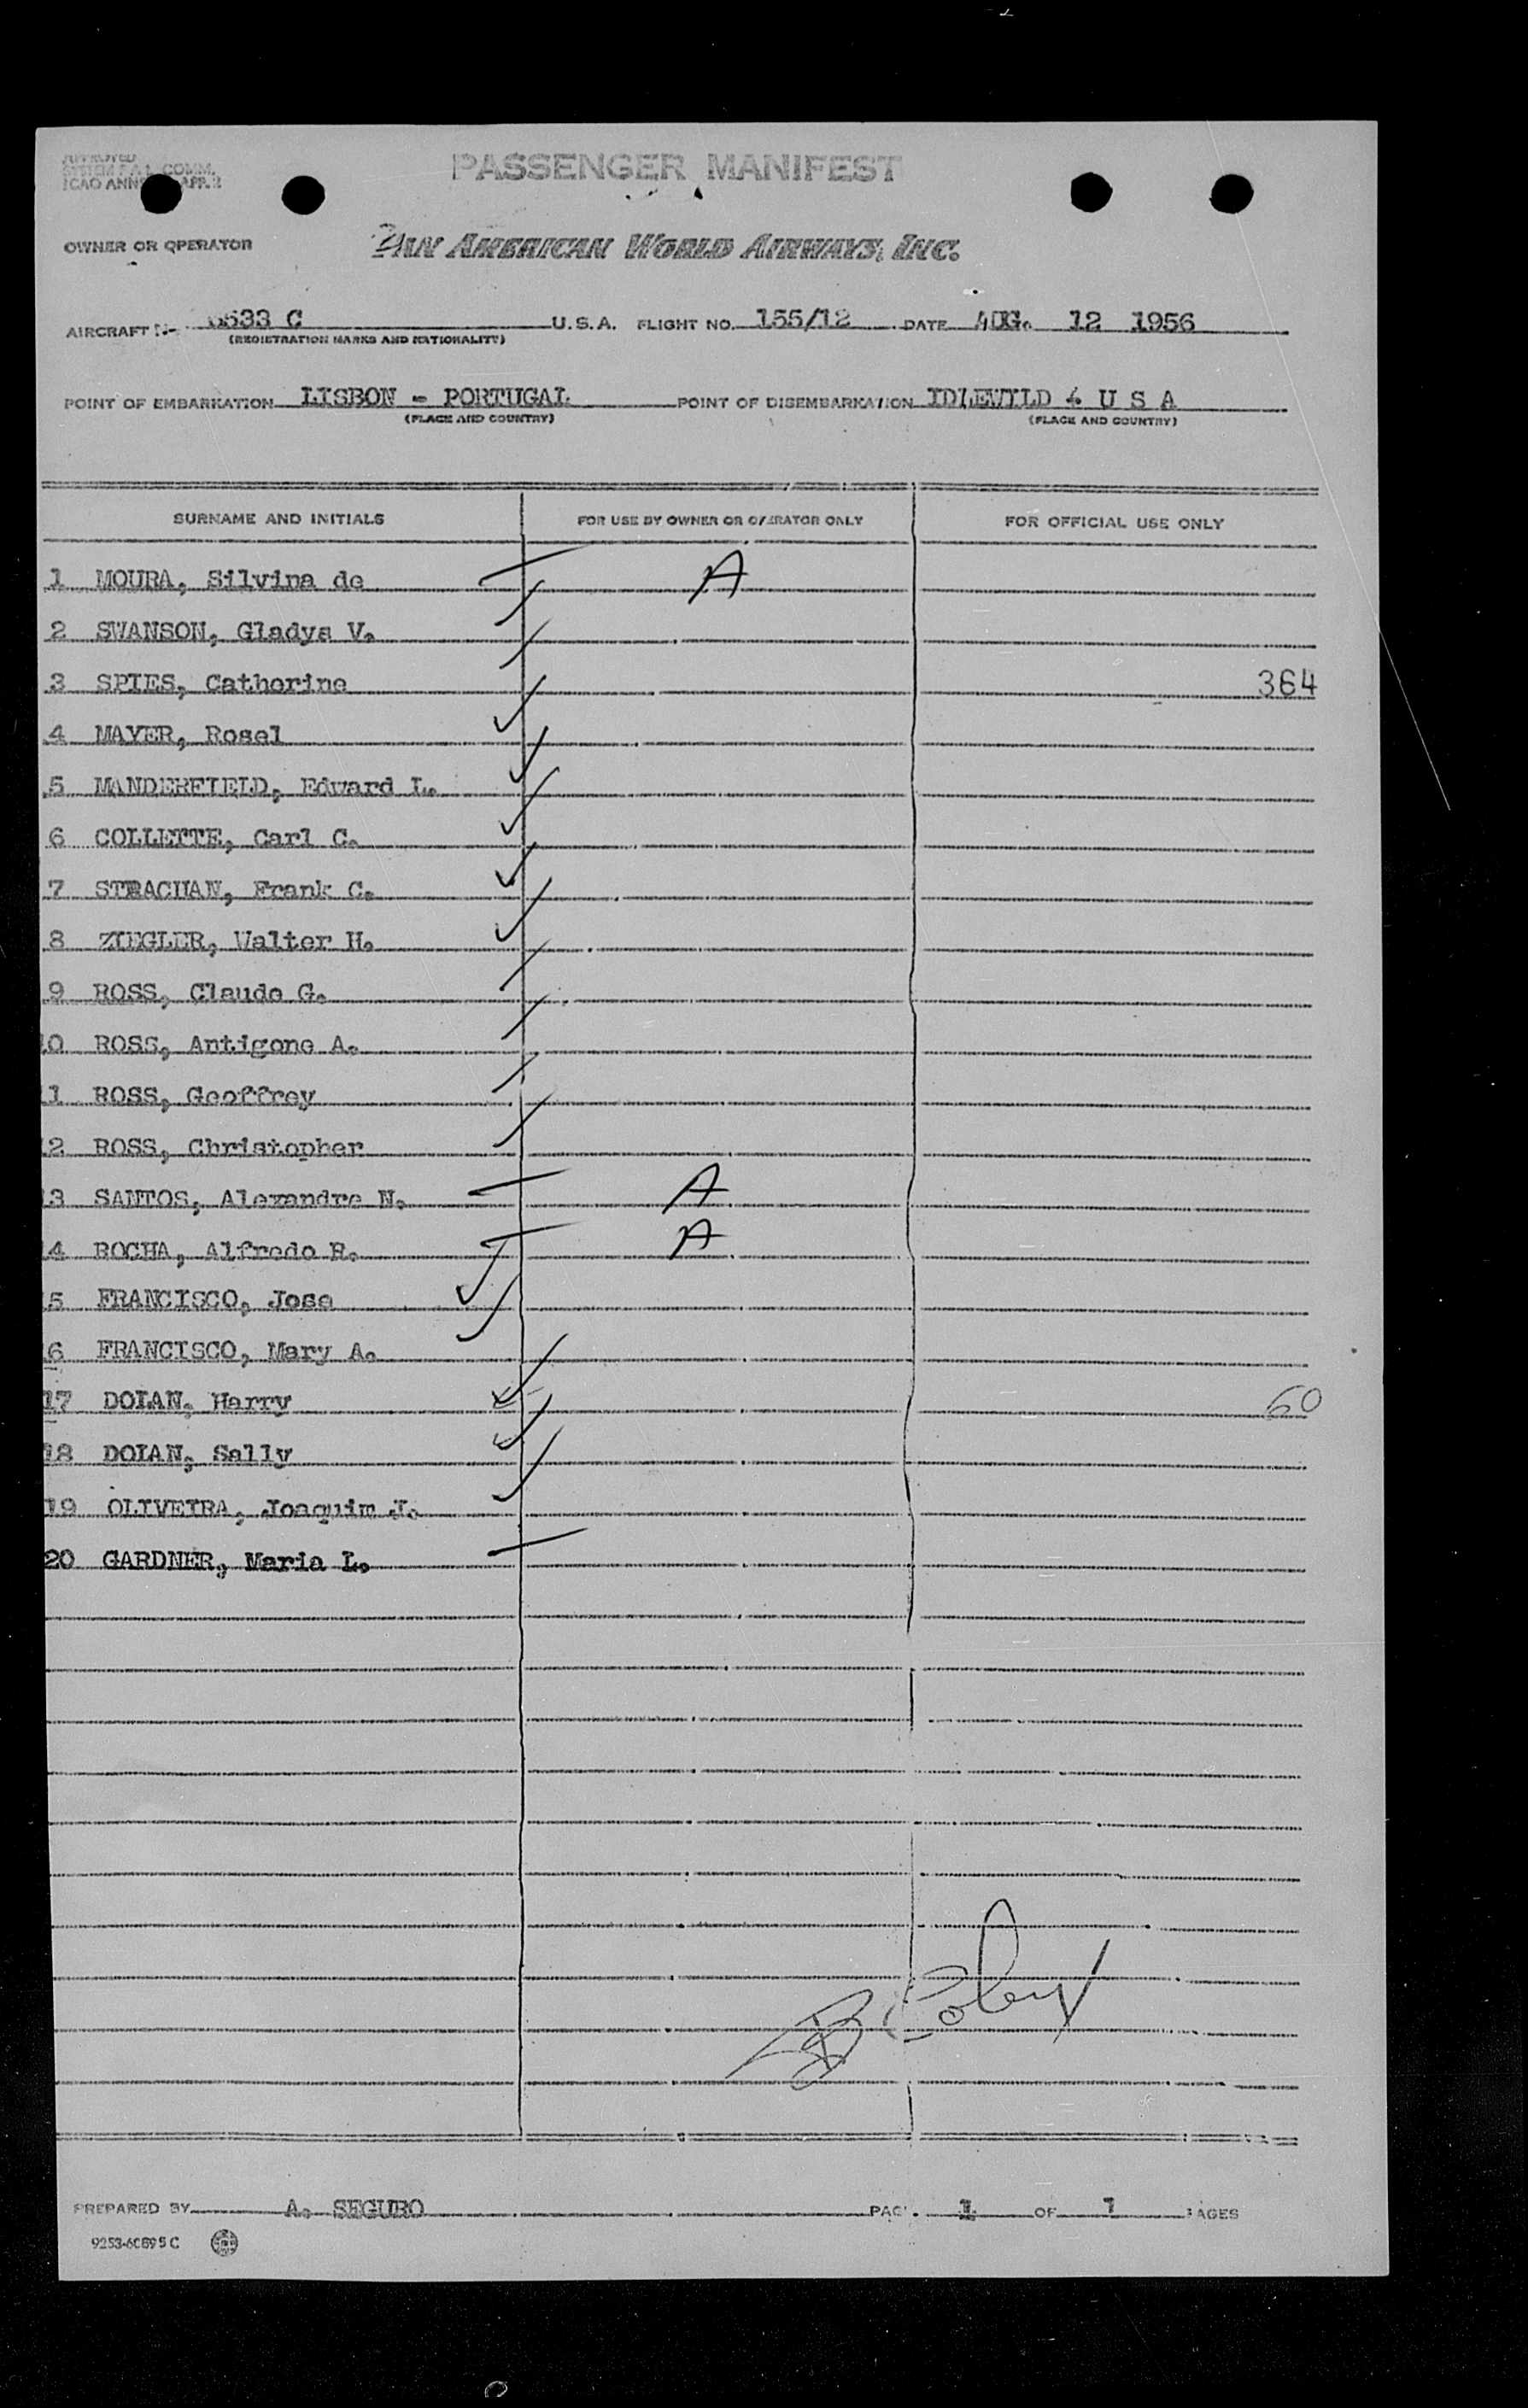 APPROVED
SYSTEM F.A.L. COMM.
ICAO ANNEX APP. 2
PASSENGER MANIFEST
OWNER OR OPERATOR PAN AMERICAN WORLD AIRWAYS, INC.
AIRCRAFT N- 6533 C U.S.A. FLIGHT NO. 155/12 DATE AUG. 12 1956
(REGISTRATION MARKS AND NATIONALITY)
POINT OF EMBARKATION LISBON - PORTUGAL POINT OF DISEMBARKATION IDLEWILD - U S A
(PLACE AND COUNTRY) (PLACE AND COUNTRY)
SURNAME AND INITIALS FOR USE BY OWNER OR OPERATOR ONLY FOR OFFICIAL USE ONLY
1 MOURA, Silvina de A
2 SWANSON, Gladys V.
3 SPIES, Catherine 364
4 MAYER, Rosel
5 MANDERFIELD, Edward L.
6 COLLETTE, Carl C.
7 STRACHAN, Frank C.
8 ZIEGLER, Walter H.
9 ROSS, Claude G.
10 ROSS, Antigone A.
11 ROSS, Geoffrey
12 ROSS, Christopher
13 SANTOS, Alexandre N. A
14 ROCHA, Alfredo R. A
15 FRANCISCO, Jose
16 FRANCISCO, Mary A.
17 DOLAN, Harry 60
18 DOLAN, Sally
19 OLIVEIRA, Joaquim J.
20 GARDNER, Maria L.
PREPARED BY A. SEGURO PAGE 1 OF 1 PAGES